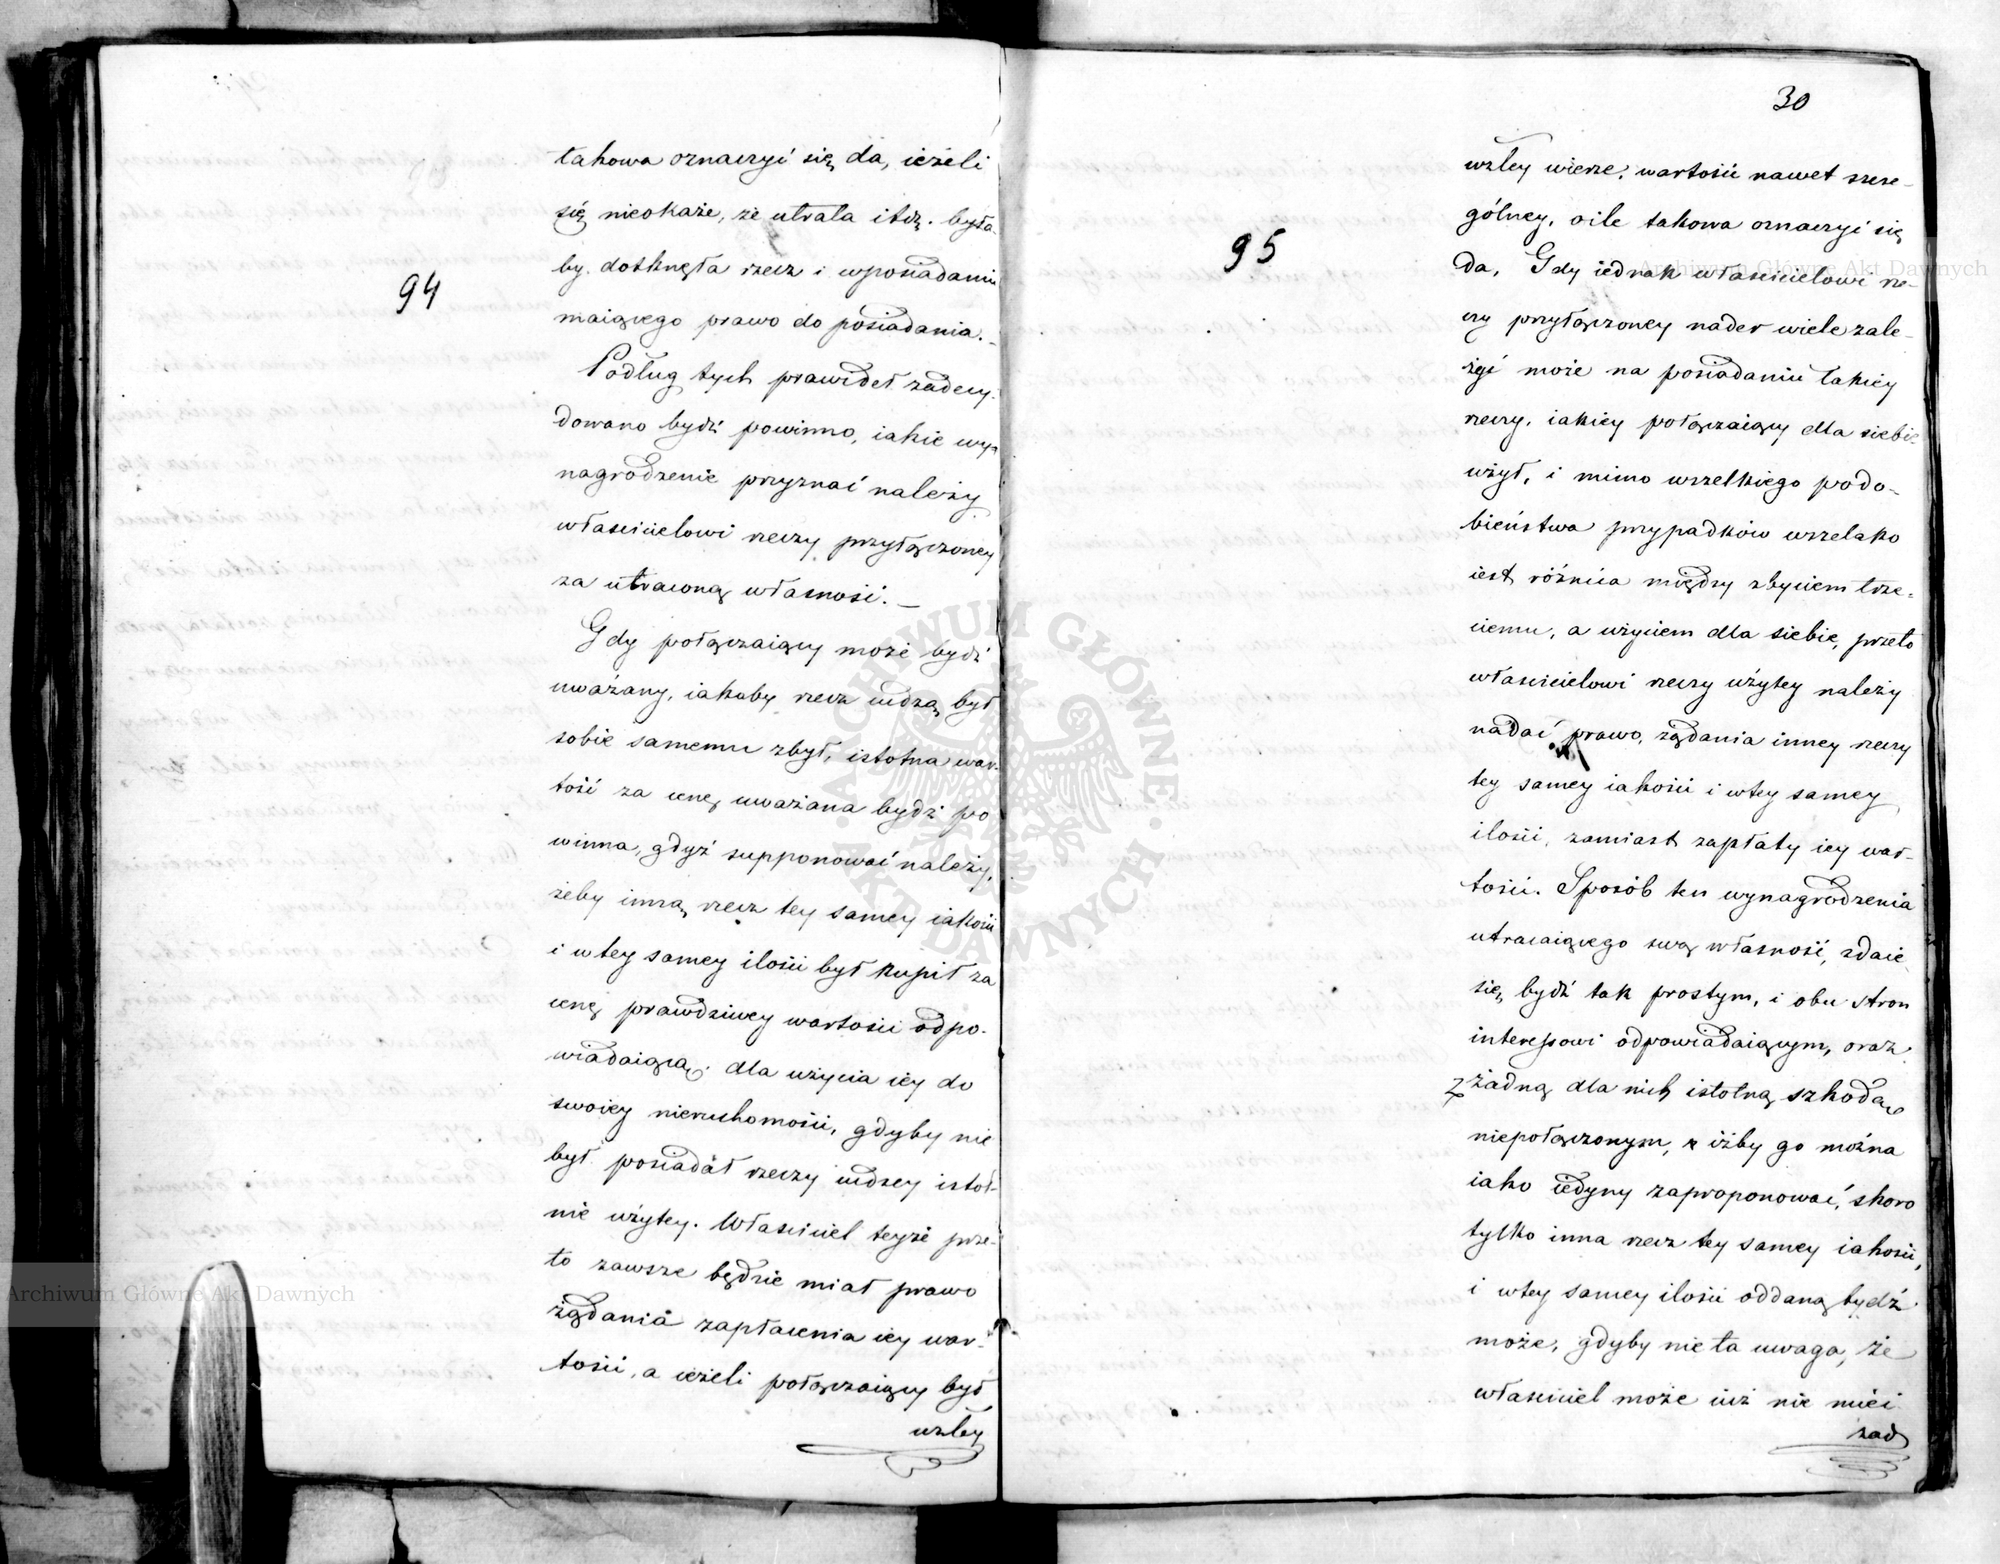 94
takowa oznaczyć się da, ieżeli
się nieokaże, że utrata itd. była
by dotknęła rzecz i wposiadaniu
maiącego prawo do posiadania. _
Podług tych prawideł zadecy-
dowano bydź powinno, iakie wy-
nagrodzenie przyznać należy
właścicielowi rzeczy przyłączoney
za utraconą własność. _
Gdy połączaiący może bydź
uważany, iakoby rzecz cudzą był
sobie samemu zbył, istotna war-
tość za cenę uważana bydź po
winna, gdyż supponować należy,
żeby inną rzecz tey samey iakości
i wtey samey ilości był kupił za
cenę prawdziwey wartości odpo-
wiadaiącą, dla użycia iey do
swoiey nieruchomości, gdyby nie
był posiadał rzeczy cudzey istot-
nie użytey. Właściciel teyże prze-
to zawsze będzie miał prawo
żądania zapłacenia iey war-
tości, a ieżeli połączaiący był
wzłey
30
95
wzłey wierze, wartości nawet szcze-
gólney, oile takowa oznaczyć się
da. Gdy iednak właścicielowi rze-
czy przyłączoney nader wiele zale-
żyć może na posiadaniu takiey
rzeczy, iakiey połączaiący dla siebie
użył, i mimo wszelkiego podo-
bieństwa przypadków wszelako
iest różnica między zbyciem trze-
ciemu, a użyciem dla siebie, przeto
właścicielowi rzeczy użytey należy
nadać prawo, żądania inney rzeczy
tey samey iakości i wtey samey
ilości, zamiast zapłaty iey war-
tości. Sposób ten wynagrodzenia
utracaiącego swą własność, zdaie
się bydź tak prostym, i obu stron
interessowi odpowiadaiącym, oraz
z żadną dla nich istotną szkodą
niepołączonym, iżby go można
iako iedyny zaproponować, skoro
tylko inna rzecz tey samey iakości,
i wtey samey ilości oddaną bydź
może, gdyby nie ta uwaga, że
właściciel może iuż nie mieć
żad
Archiwum Główne Akt Dawnych
Archiwum Główne Akt Dawnych
ARCHIWUM GŁÓWNE · AKT DAWNYCH ·